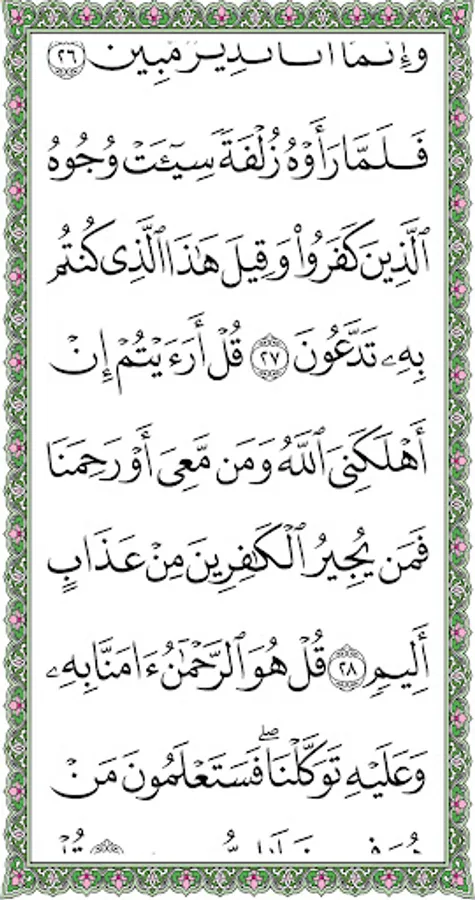 وَإِنَّمَآ أَنَا۠ نَذِيرٌ مُّبِينٌ ٢٦
فَلَمَّا رَأَوْهُ زُلْفَةً سِيٓـَٔتْ وُجُوهُ
ٱلَّذِينَ كَفَرُوا۟ وَقِيلَ هَٰذَا ٱلَّذِى كُنتُم
بِهِۦ تَدَّعُونَ ٢٧ قُلْ أَرَءَيْتُمْ إِنْ
أَهْلَكَنِىَ ٱللَّهُ وَمَن مَّعِىَ أَوْ رَحِمَنَا
فَمَن يُجِيرُ ٱلْكَٰفِرِينَ مِنْ عَذَابٍ
أَلِيمٍ ٢٨ قُلْ هُوَ ٱلرَّحْمَٰنُ ءَامَنَّا بِهِۦ
وَعَلَيْهِ تَوَكَّلْنَا ۖ فَسَتَعْلَمُونَ مَنْ